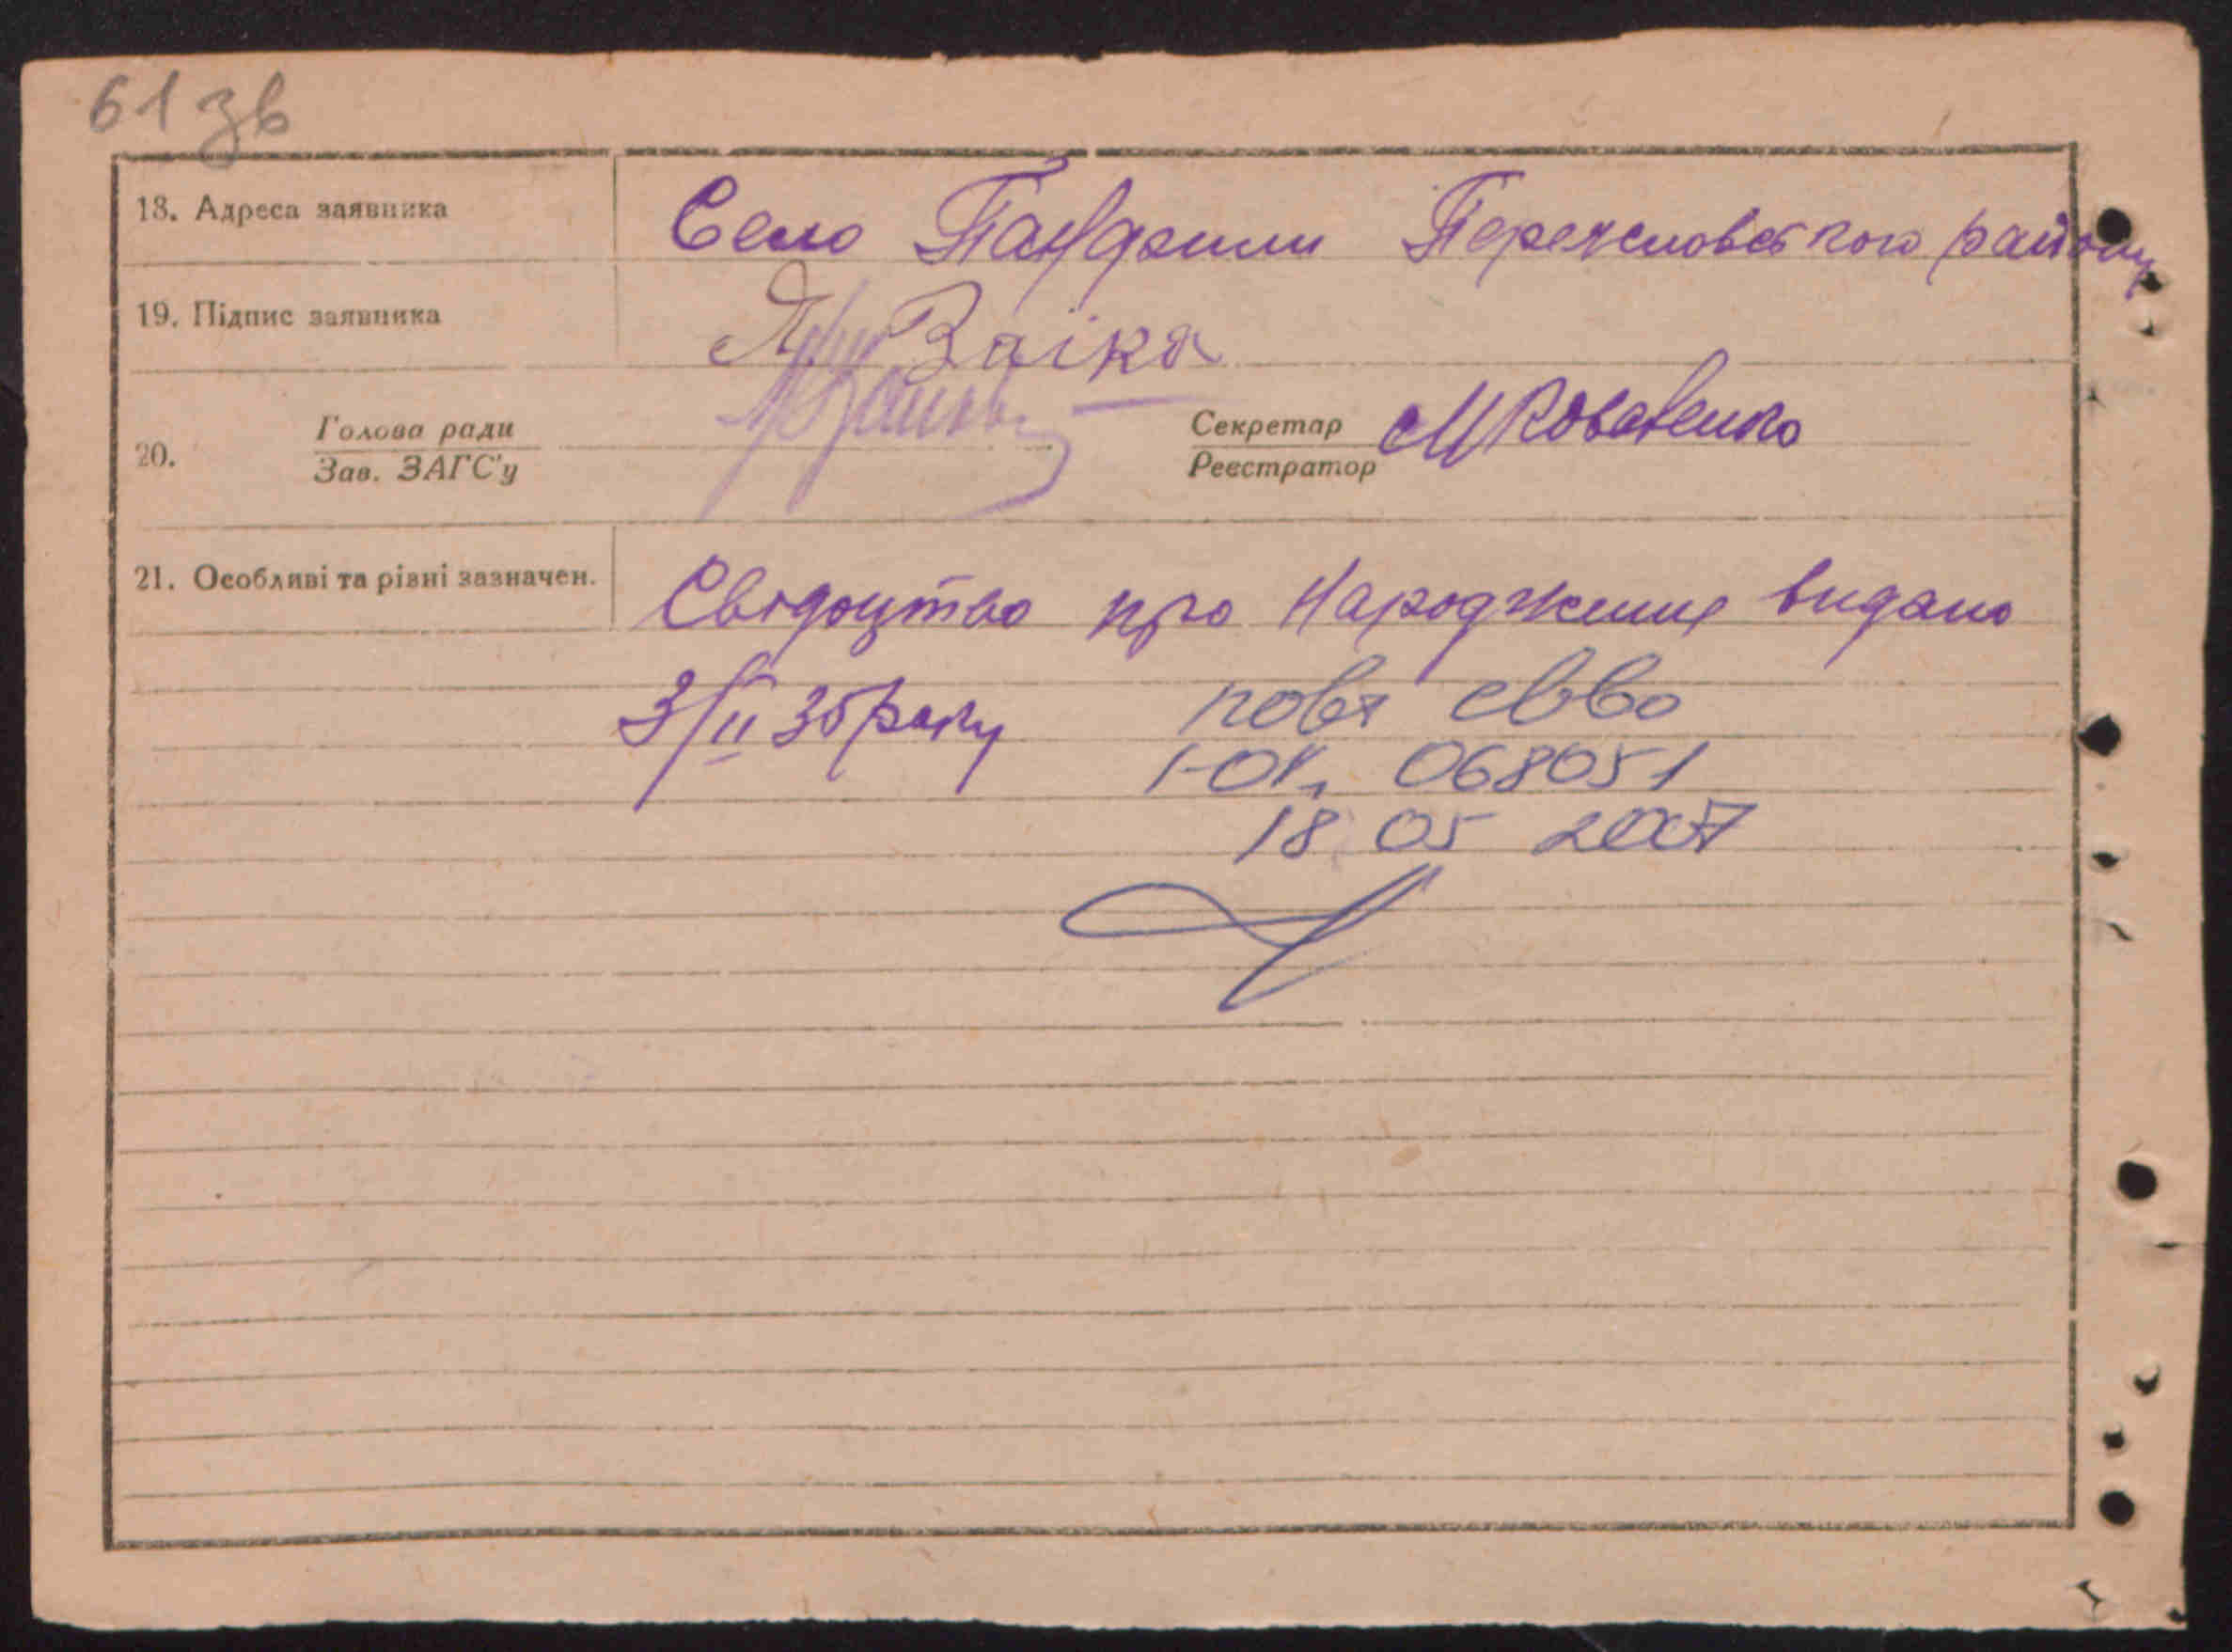 61 зв
18. Адреса заявника Село Переяславського району
19. Підпис заявника Заїка
20. Голова ради
Зав. ЗАГС'у
Секретар
Реєстратор
М Коваленко
21. Особливі та рівні зазначен. Свідоцтво про Народження видано
3/II 35 року
повт св-во
І-ОК 068051
18 05 2007